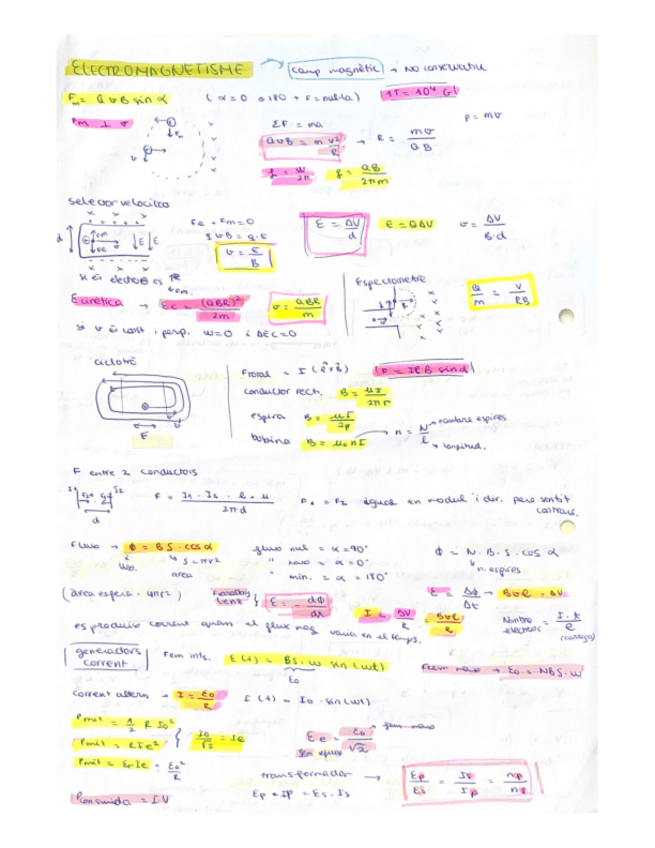 ELECTROMAGNETISME → camp magnètic → No conservatiu
Fm = Q v B sin α (α = 0 o 180 → F = nul·la) 1T = 10⁴ G
Fm ⊥ v
ΣF = ma p = mv
QvB = m v²/R → R = mv/QB
f = w/2π f = QB/2πm
selector velocitats
Fe + Fm = 0
q v B = q · E
v = E/B
E = ΔV/d E = QΔV v = ΔV/B·d
si és electró es
E cinètica → Ec = (QBR)²/2m v = QBR/m
Espectòmetre Q/m = V/RB
si v és const i perp. W=0 i ΔEC=0
ciclotró
E
Ftotal = I (l × B) F = I l B sin α
conductor recti. B = μI/2πr
espira B = μI/2r
bobina B = μ₀ n I → n = N/l → nombre espires
→ longitud.
F entre 2 conductors
I₁ I₂
d
F = I₁ · I₂ · l · μ/2πd F₁ = F₂ iguals en mòdul i dir. però sentit
contrari.
Fluxe → Φ = B S · cos α
Wb. S = πr²
area
fluxe nul = α = 90°
" max = α = 0°
" min. = α = 180°
Φ = N · B · S · cos α
n. espires
(àrea esfera = 4πr²)
Faraday Lenz } ε = - dΦ/dt
ε = ΔΦ/Δt → B v l = ΔV
I = ΔV/R = Bvl/R
Nombre electrons = I · t/e (càrrega)
es produeix corrent quan el flux mag varia en el temps.
generadors corrent
Fem ints. ε(t) = BS · w · sin (wt)
ε₀
Fem max → ε₀ = NBS · w
corrent altern → I = ε₀/R I(t) = I₀ · sin(wt)
Pmit = 1/2 R I₀²
Pmit = R Ie² } I₀/√2 = Ie
Pmit = εe Ie = ε₀²/R
εe = ε₀/√2 → fem max
fem eficaç
transformador → εp/εs = Is/Ip = np/ns
Ep · Ip = Es · Is
Pconsumida = I·V